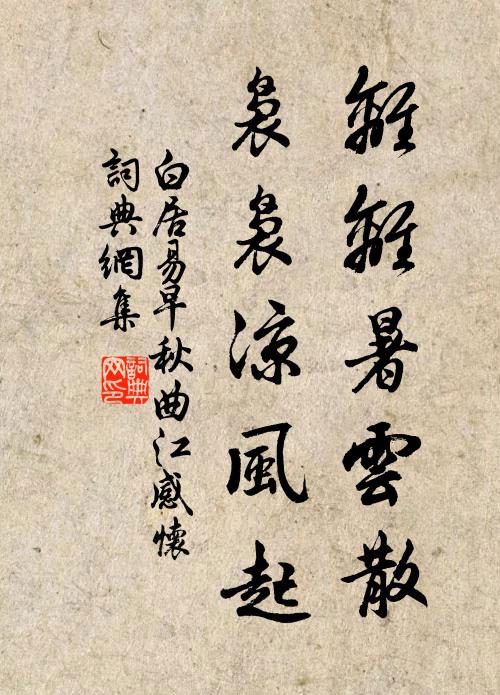 離離暑雲散
裊裊涼風起
白居易早秋曲江感懷
詞典網集
詞典
网印